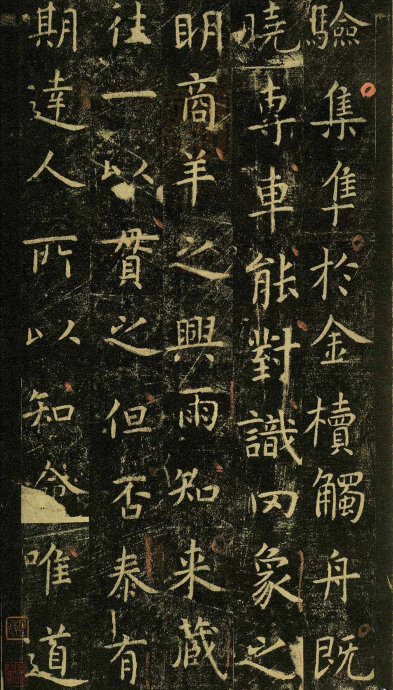 驗集隼於金櫝觸舟既
曉專車能對識罔象之
眀商羊之興雨知来藏
往一以貫之但否泰有
期達人所以知命唯道